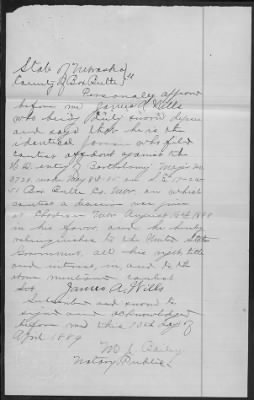 State of Nebraska }
County of Box Butte } SS
Personally appeared
before me James A. Wills
who being duly sworn depose
and says that he is the
identical person who filed
contest affidavit against the
entry of Bartholomew
made May
51 Box Butte Co. Nebr on which
contest a decision was given
at Chadron Nebr August 1888
in his favor and he hereby
relinquishes to the United States
Government all his right title
and interest, in, and to the
above mentioned contest
James A. Wills
Subscribed and sworn to
signed and acknowledged
before me this 10th day of
April 1889
M. L.
Notary Public